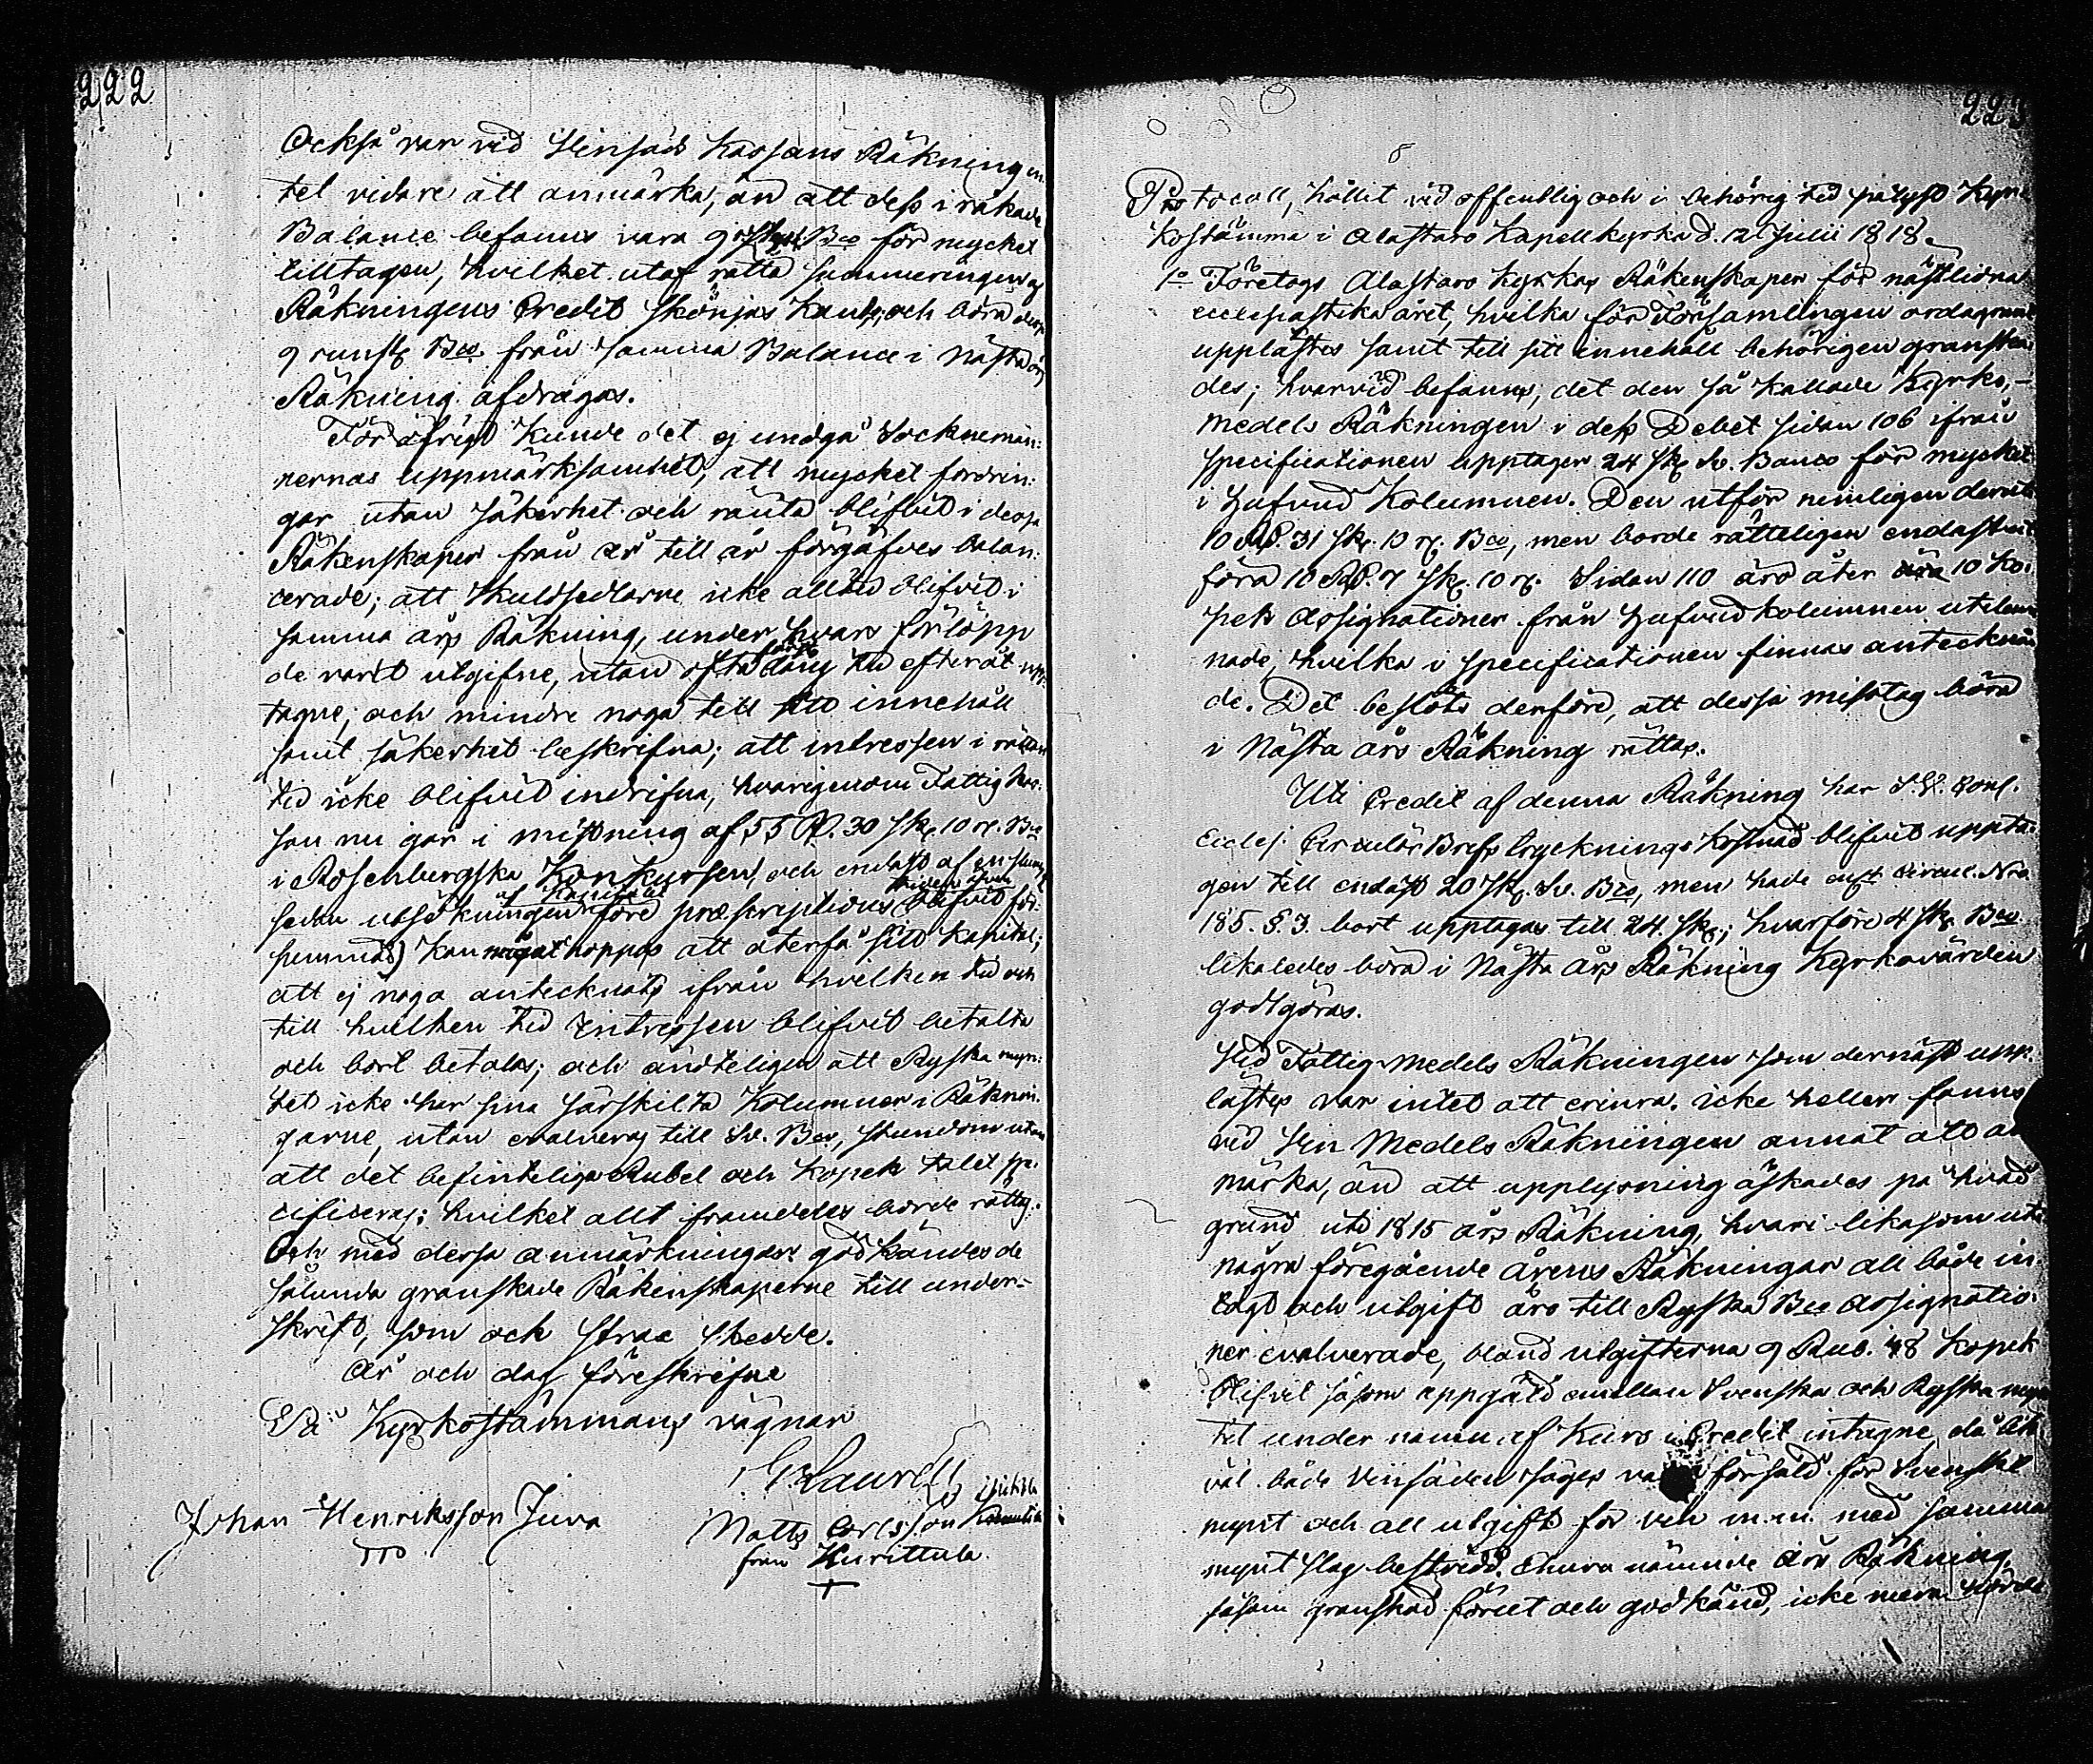 222
Också var vid Vinsäds Kassans Räkning in¬
tet vidare att anmärka, än att dess i räkade
Balance befanns vara 9 rst. Bco för mycket
tilltagen, hvilket utaf rätta summeringen af
Räkningens Credit skönjas kan, och böra dessa
9 runst. Bco från samma Balance i nästa års
Räkning afdragas.
För öfrigt kunde det ej undgå Sockenemän¬
nernas uppmärksamhet, att mycket fordrin¬
gar utan säkerhet och ränta blifvit i dessa
Räkenskaper från år till år förgäfves balan¬
cerade; att Skuldsedlarne icke alltid blifvit i
samma års Räkning, under hvars förlopp
de varit utgifne, utan ofta lång tid efteråt upp¬
tagne, och mindre noga till sitt innehåll
samt säkerhet beskrifna; att intressen i rättan
tid icke blifvit indrifna, hvarigenom Fattig kas¬
san nu går i mistning af 55 Rd. 30 sk. 10 r. Bco
i Rosenbergska Konkursen, och endast af en
sedan utsökningen af Kapitalet före præscriptions tiden blifvit för¬
summad) kan något hoppas att återfå sitt Kapital;
att ej noga antecknats ifrån hvilken tid och
till hvilken tid Intressen blifvit betalta
och bort betalas; och ändteligen att Ryska myn¬
tet icke har sina särskilta Kolumner i Räknin¬
garne, utan evalveras till Sv. Bco, stundom utan
att det befinteliga Rubel och Kopek talet spe¬
cificeras; hvilket allt framdeles borde rättas.
Och med dessa anmärkningar godkändes de
sålunda granskade Räkenskaperne till under¬
skrift, som och strax skedde.
År och dag föreskrifne
På Kyrkostämmans vägnar
G. Laurell
Johan Henriksson Juva
Matts Carlsson
från Hurittula
223
Protocoll, hållit vid offentlig och i behörig tid pålyst Kyr¬
kostämma i Alastaro Kapellkyrka d. 12 Julii 1818.
1o Företogs Alastaro Kyrkas Räkenskaper för nästlidna
ecclesiastika året, hvilka för Församlingen ordagrant
upplästes samt till sitt innehåll behörigen granska¬
des; hvarvid befanns, det den så kallade Kyrko¬
medels Räkningen i dess Debet sidan 106 ifrån
specificationen upptager 24 sk. Sv. Banco för mycket
i Hufvud Kolumnen. Den utför nemligen derute
10 Rd. 31 sk. 10 r. Bco, men borde rätteligen endast ut¬
föra 10 Rd. 7 sk. 10 r. Sidan 110 äro åter 10 Ko¬
pek Assignationer från Hufvudkolumnen utelem¬
nade, hvilka i specificationen finnas anteckna¬
de. Det beslöts derföre, att dessa misstag böra
i Nästa års Räkning rättas.
Uti Credit af denna Räkning har S. V. Cons.
Eccles. Circulär Brefs tryknings kostnad blifvit uppta¬
gen till endast 20 sk. Sv. Bco, men hade enl. Circul. Nro
185. §. 3. bort upptagas till 24 sk; hvarföre 4 sk. Bco
likaledes böra i Nästa års Räkning Kyrkovärden
godtgöras.
Vid Fattig Medels Räkningen som dernäst upp¬
lästes var intet att erinra. icke heller fanns
vid Vin Medels Räkningen annat att an
märka, än att upplysning äskades på hvad
grund uti 1815 års Räkning, hvari likasom uti
några föregående årens Räkningar all både in
tägt och utgift äro till Ryska Bco Assignatio¬
ner evalverade, bland utgifterna 9 Rub. 48 Kopek
blifvit såsom uppgäld emellan Svenska och Ryska myn
tet under namn af Kurs i Credit intagne, då lik
väl både Vinsäden säges vara försåld för Svenskt
mynt och all utgift för vin m.m. med samma
mynt slag bestridd. Ehuru nämnde års Räkning,
såsom granskad förut och godkänd, icke mera